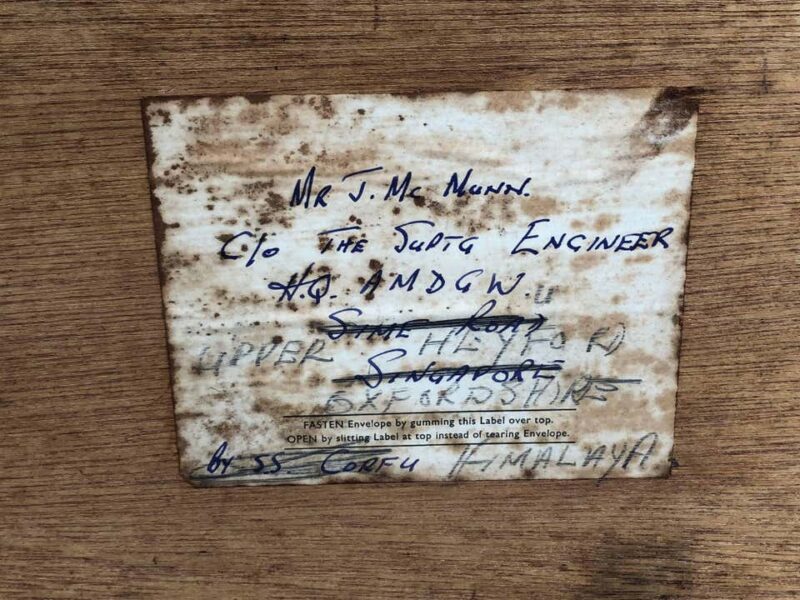 MR J. MC NUNN.
C/o THE SUPTG ENGINEER
H.Q. AMDGW.
SIME ROAD
UPPER HEYFORD
SINGAPORE
OXFORDSHIRE
FASTEN Envelope by gumming this Label over top.
OPEN by slitting Label at top instead of tearing Envelope.
By SS. CORFU HIMALAYA